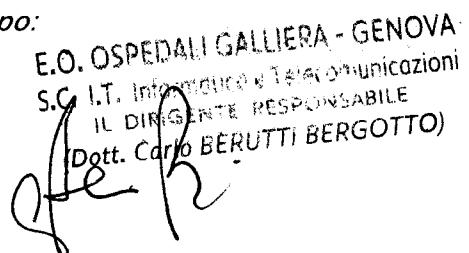 po:
E.O. OSPEDALI GALLIERA - GENOVA
S.C. I.T. Informatica e Telecomunicazioni
IL DIRIGENTE RESPONSABILE
(Dott. Carlo BERUTTI BERGOTTO)